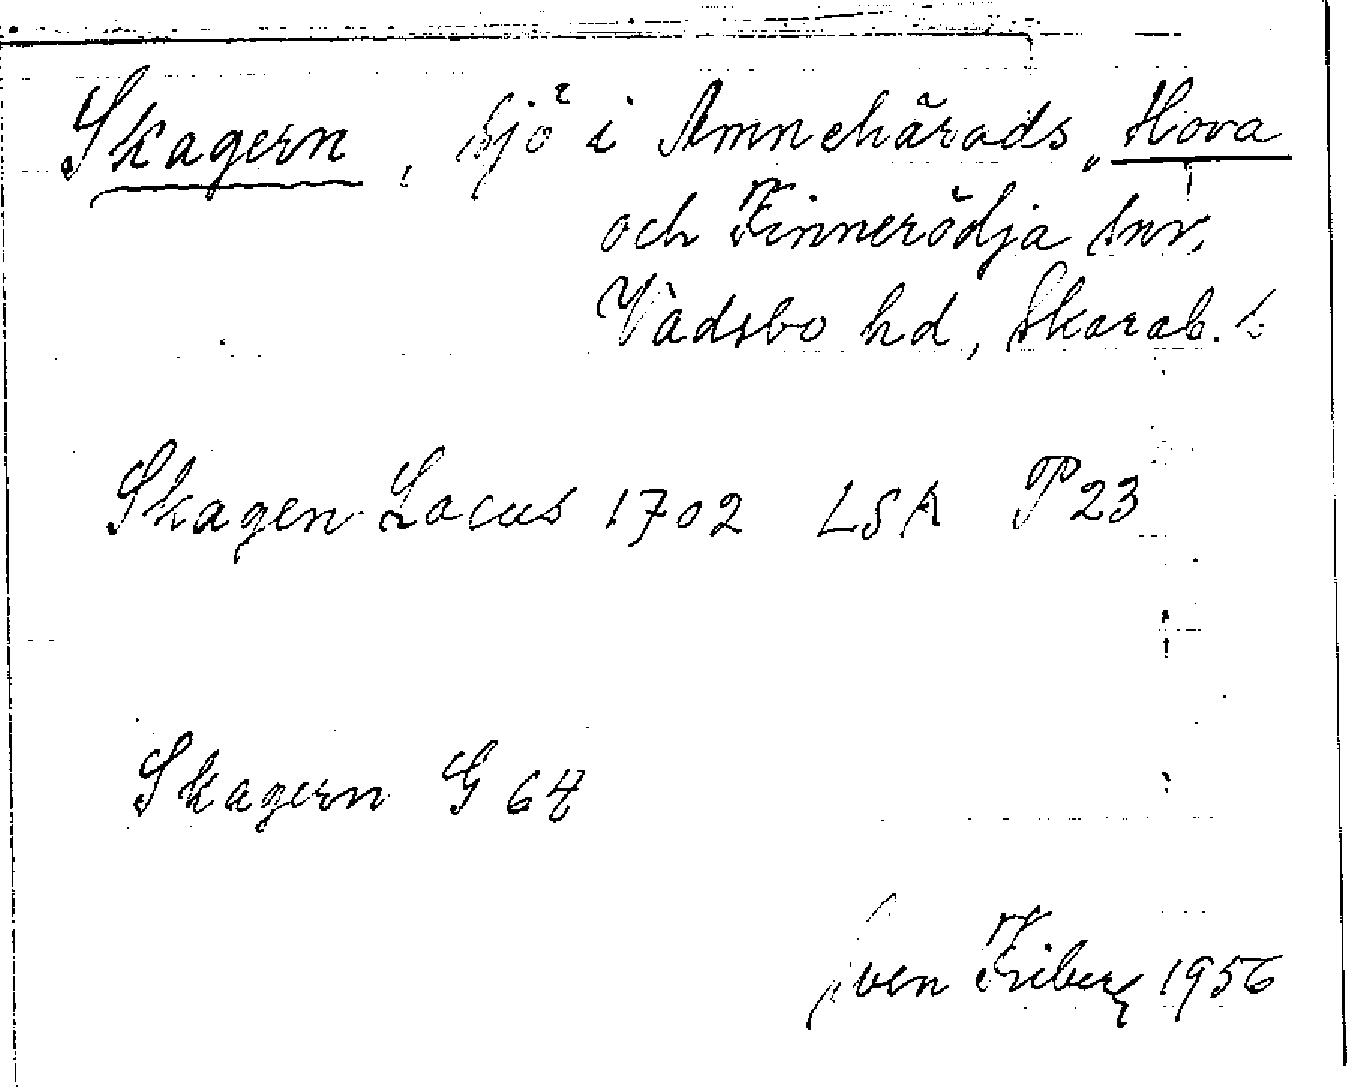 Skagern, sjö i Amnehärads, Hova
och Finnerödja snr,
Vadsbo hd, Skarab. l
Skagen Lacus 1702 LSA P23
Skagern G 64
Sven Friberg 1956